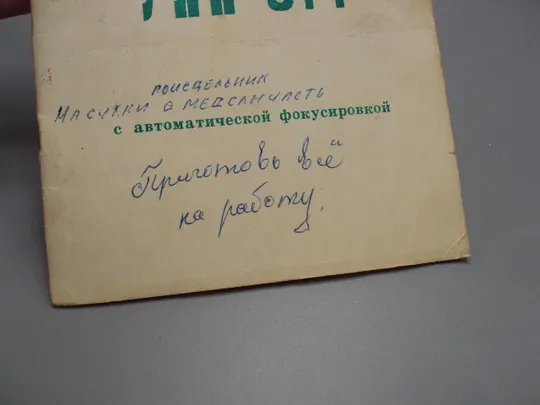 понедельник
на сутки в медсанчасть
с автоматической фокусировкой
Приготовь всё
на работу.